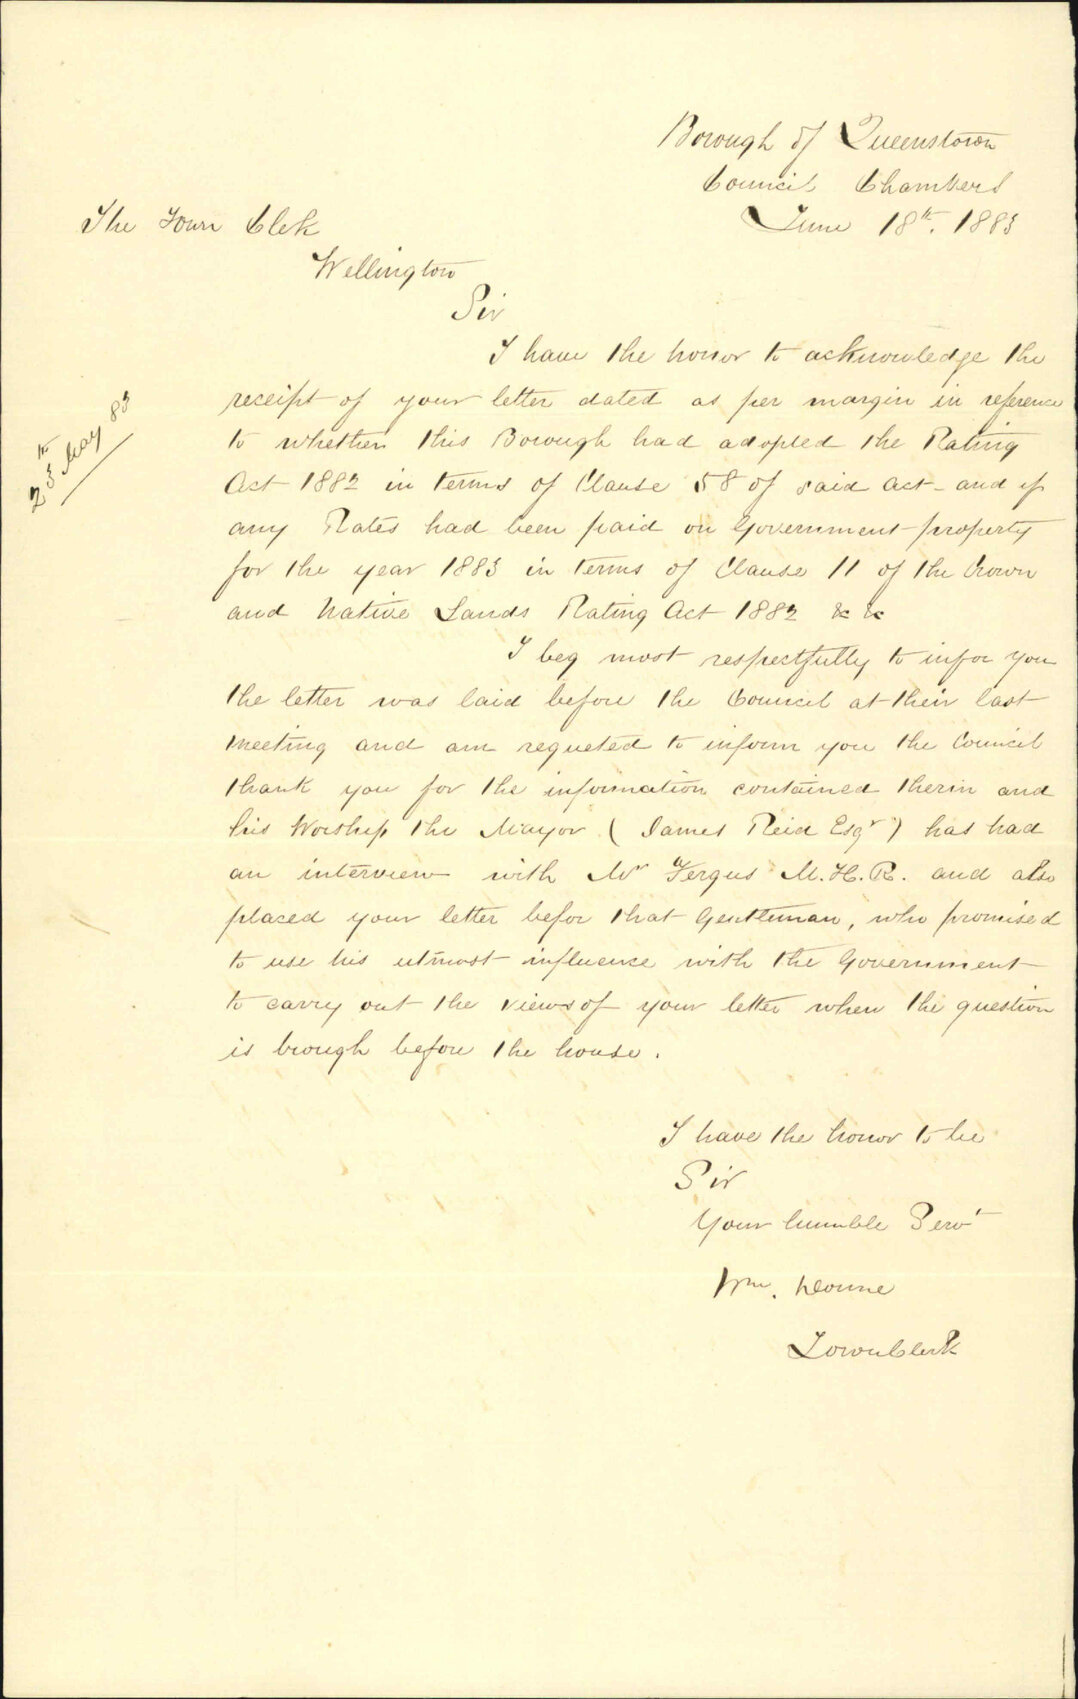 Borough of Queenstown
Council Chambers
June 18th. 1883
The Town Clek
Wellington
Sir
I have the honor to acknowledge the
receipt of your letter dated as per margin in reference
23th May 83
to whether this Borough had adopted the Rating
Act 1882 in terms of Clause 58 of said Act - and if
any Rates had been paid on Government property
for the year 1883 in terms of Clause 11 of the Crown
and Native Lands Rating Act 1882 &c &c
I beg most respectfully to infor you
the letter was laid before the Council at their last
meeting and am requeted to inform you the Council
thank you for the information contained therin and
his Worship the Mayor (James Reid Esqr) has had
an interview with Mr Fergus M.H.R. and also
placed your letter befor that Gentleman, who promised
to use his utmost influence with the Government
to carry out the views of your letter when the question
is brough before the house.
I have the honor to be
Sir
Your humble Servt
Wm. Downe
Town Clerk